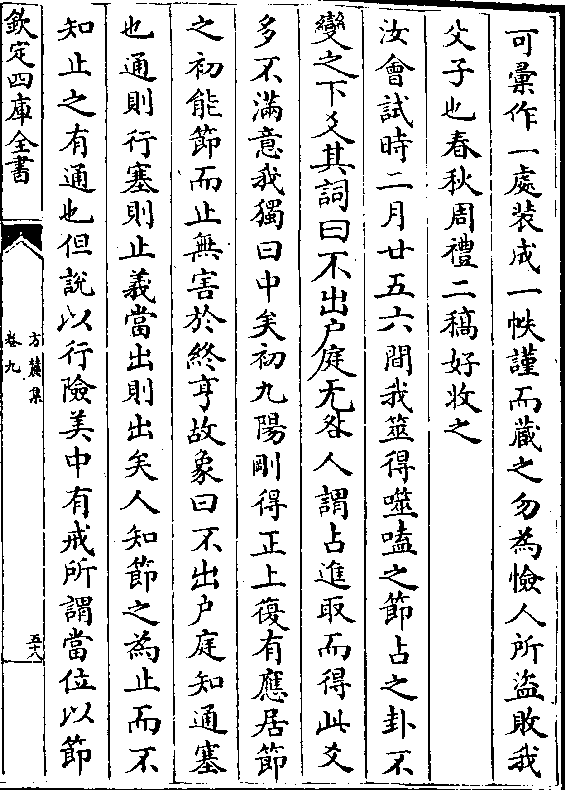 可彙作一處裝成一帙謹而藏之勿為憸人所盜敗我
父子也春秋周禮二稿好收之
汝會試時二月廿五六間我筮得噬嗑之節占之卦不
變之下爻其詞曰不出户庭无咎人謂占進取而得此爻
多不滿意我獨曰中矣初九陽剛得正上復有應居節
之初能節而止無害於終亨故象曰不出户庭知通塞
也通則行塞則止義當出則出矣人知節之為止而不
知止之有通也但說以行險美中有戒所謂當位以節
欽定四庫全書
方麓集
卷九
五十八